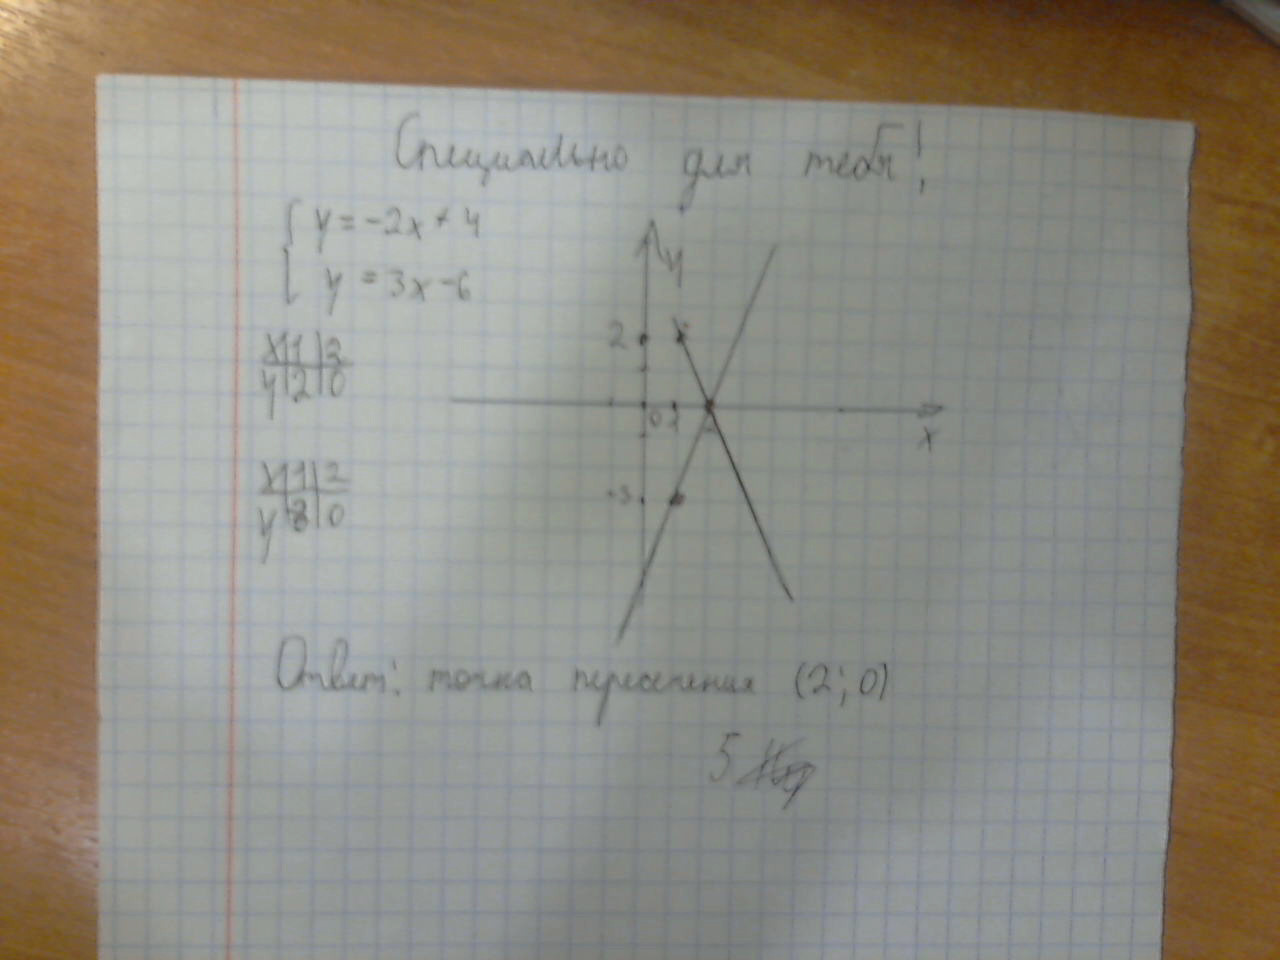 Специально для тебя!
y = -2x + 4
y = 3x - 6
x 1 2
y 2 0
x 1 2
y 3 0
y
2
0 1 2
x
-3
Ответ: точка пересечения (2; 0)
5